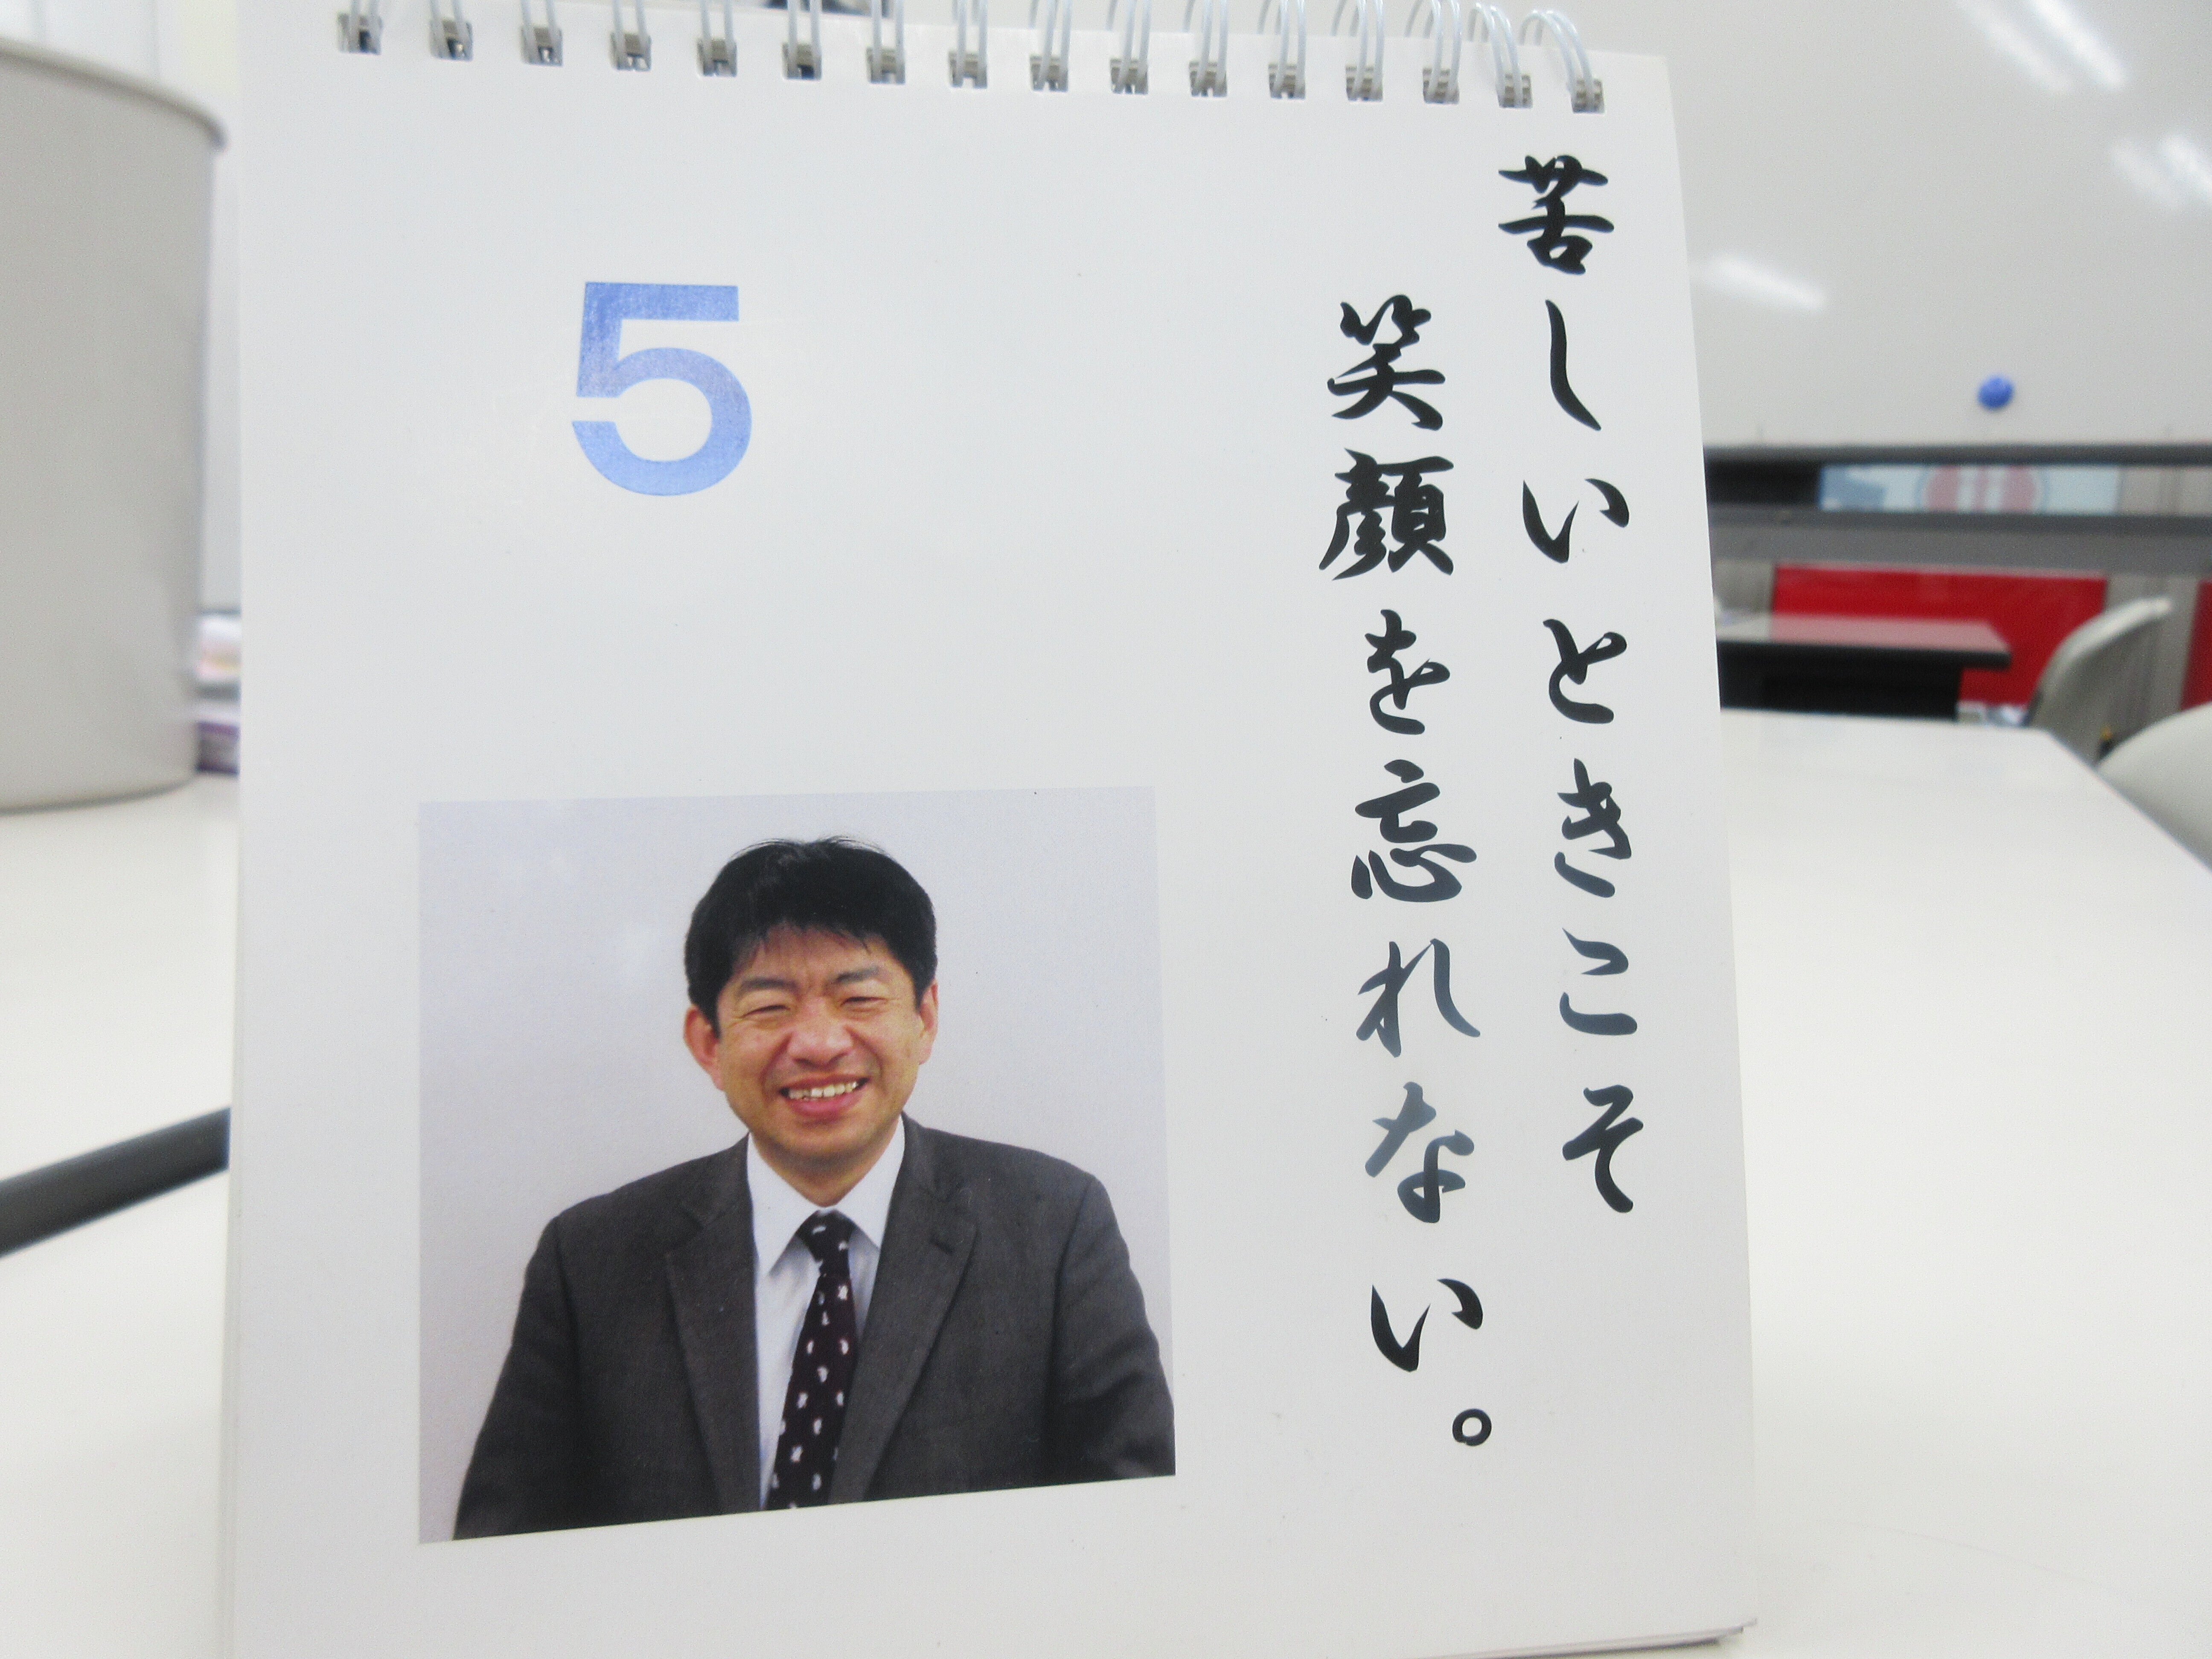 苦しいときこそ
笑顔を忘れない。
5